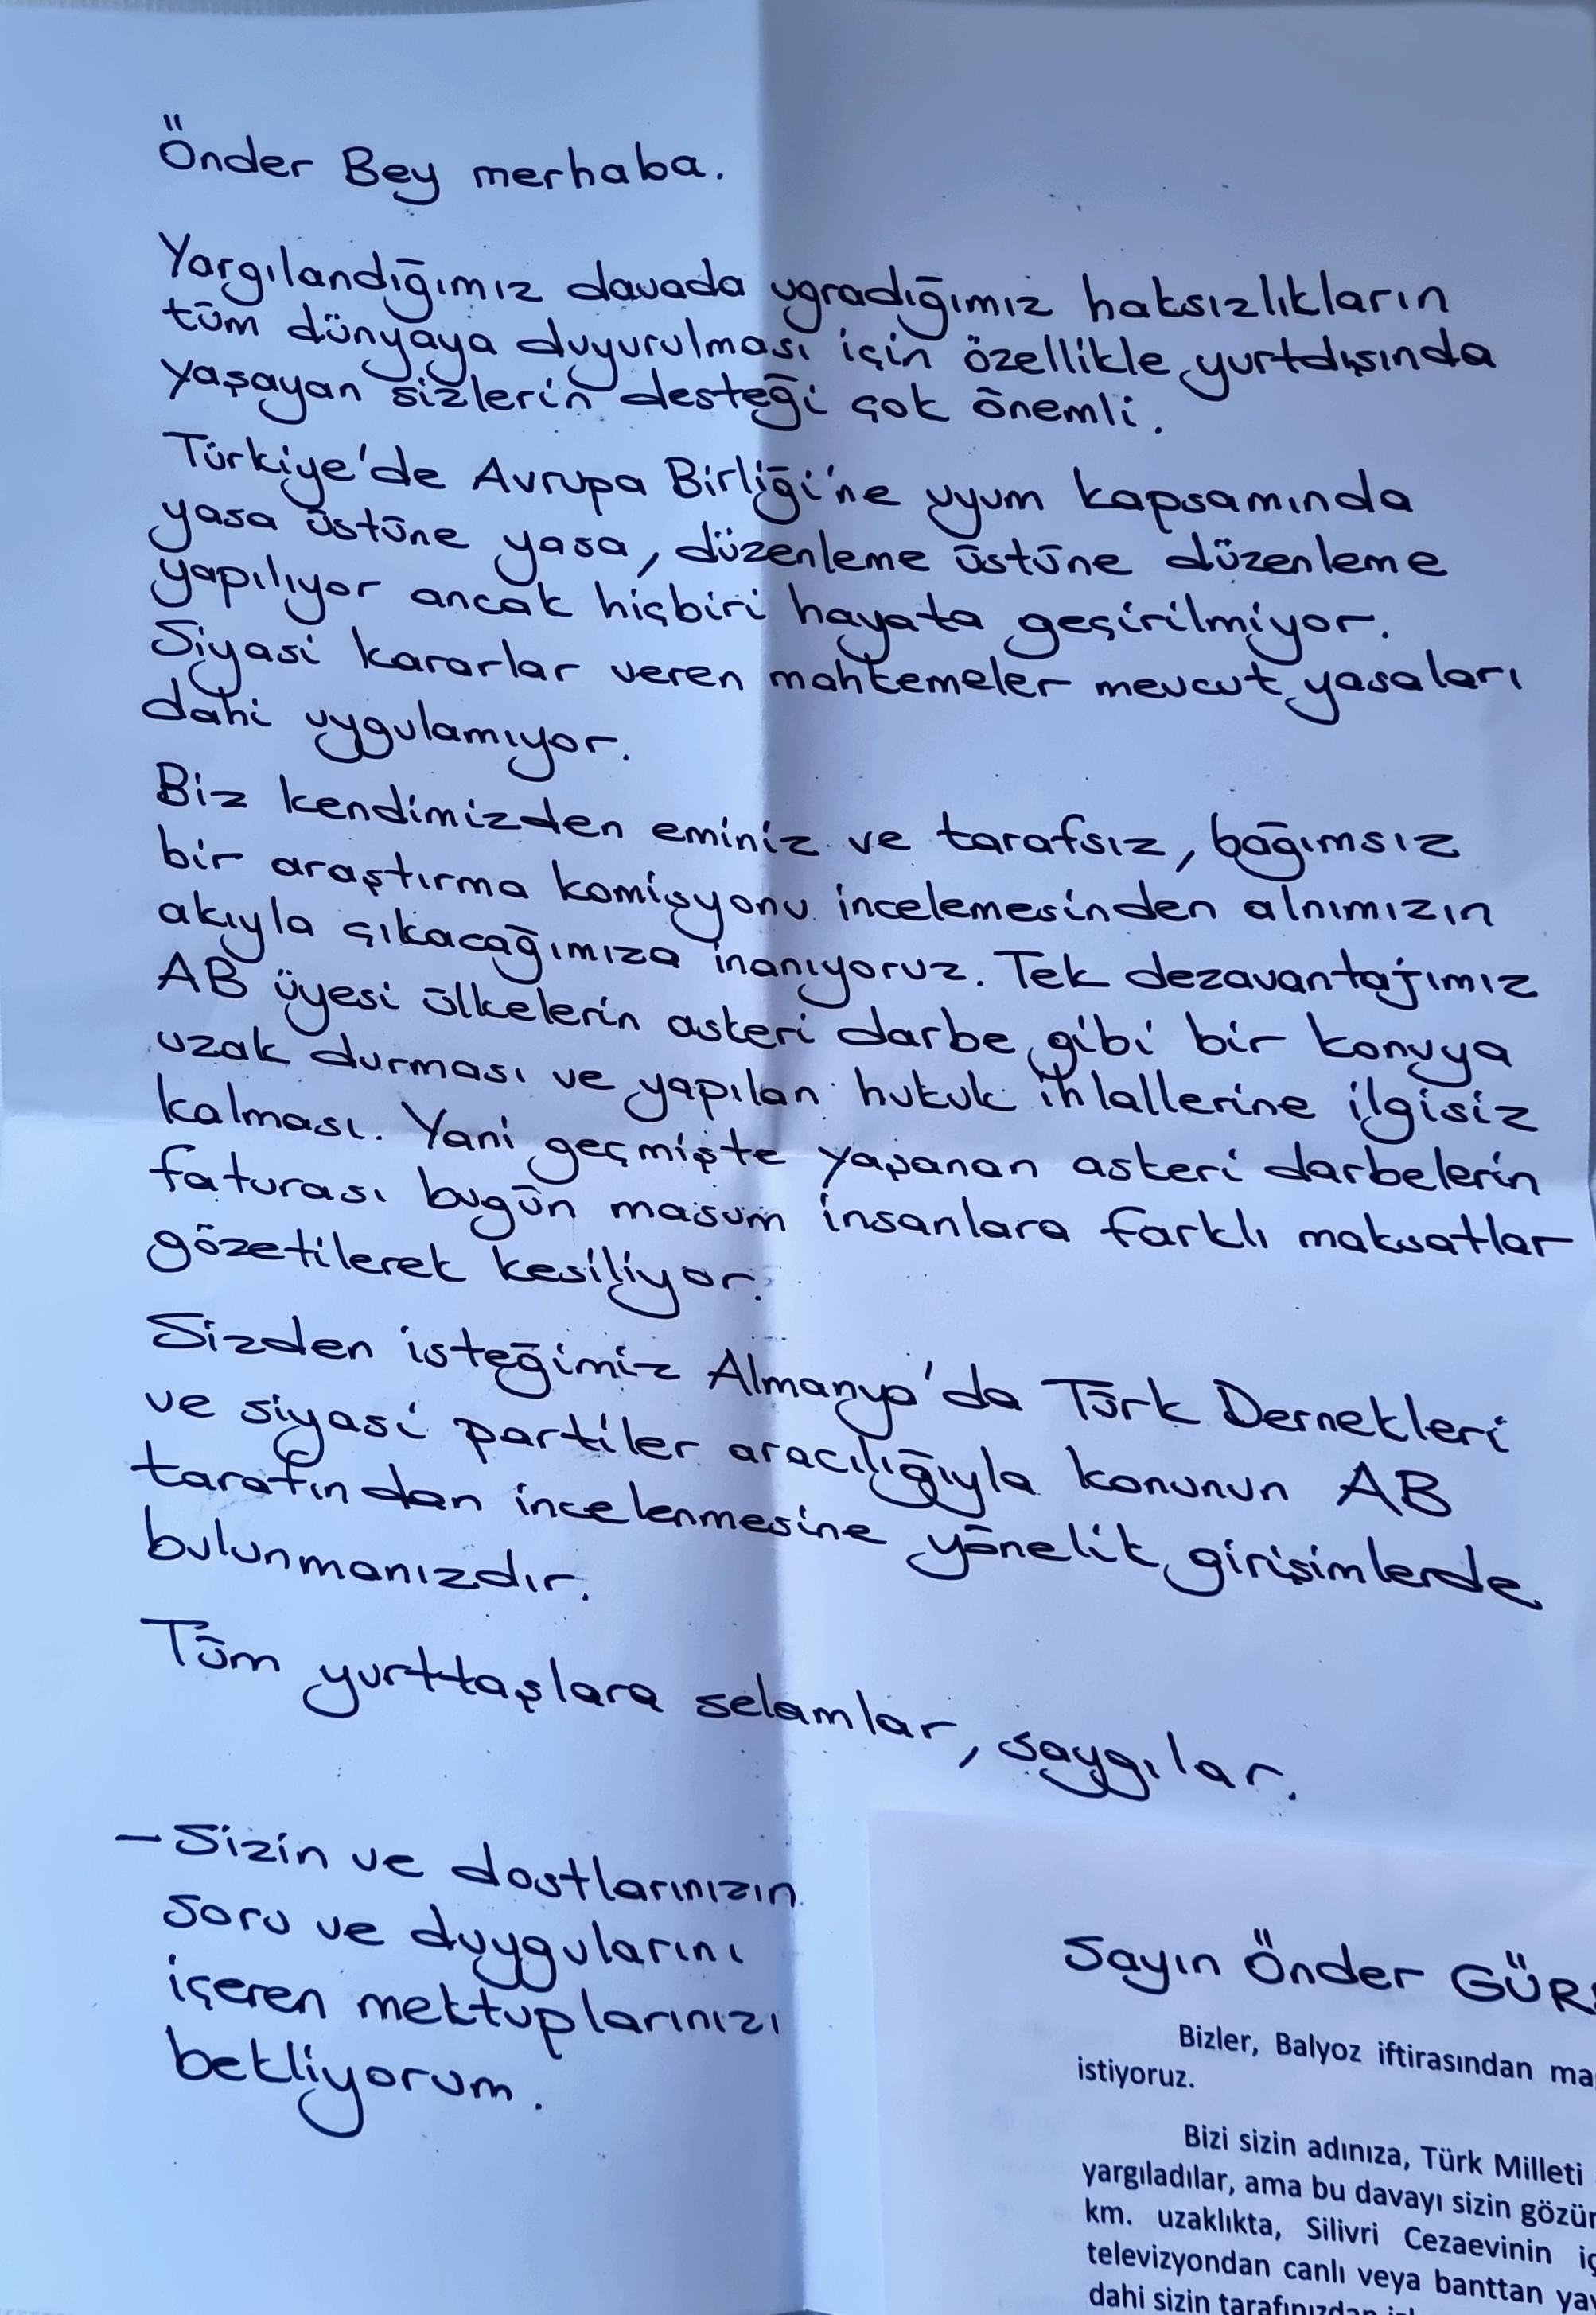 Önder Bey merhaba.
Yargılandığımız davada ugradığımız haksızlıkların
tüm dünyaya duyurulması için özellikle yurtdışında
yaşayan sizlerin desteği çok önemli.
Türkiye'de Avrupa Birliği'ne uyum kapsamında
yasa üstüne yasa, düzenleme üstüne düzenleme
yapılıyor ancak hiçbiri hayata geçirilmiyor.
Siyasi kararlar veren mahkemeler mevcut yasaları
dahi uygulamıyor.
Biz kendimizden eminiz ve tarafsız, bağımsız
bir araştırma komisyonu incelemesinden alnımızın
akıyla çıkacağımıza inanıyoruz. Tek dezavantajımız
AB üyesi ülkelerin askeri darbe gibi bir konuya
uzak durması ve yapılan hukuk ihlallerine ilgisiz
kalması. Yani geçmişte yapanan askeri darbelerin
faturası bugün masum insanlara farklı maksatlar
gözetilerek kesiliyor.
Sizden isteğimiz Almanya'da Türk Dernekleri
ve siyasi partiler aracılığıyla konunun AB
tarafından incelenmesine yönelik girişimlerde
bulunmanızdır.
Tüm yurttaşlara selamlar, saygılar.
– Sizin ve dostlarınızın
soru ve duygularını
içeren mektuplarınızı
bekliyorum.
Sayın Önder GÜR
Bizler, Balyoz iftirasından ma
istiyoruz.
Bizi sizin adınıza, Türk Milleti
yargıladılar, ama bu davayı sizin gözü
km. uzaklıkta, Silivri Cezaevinin iç
televizyondan canlı veya banttan ya
dahi sizin tarafınızdan